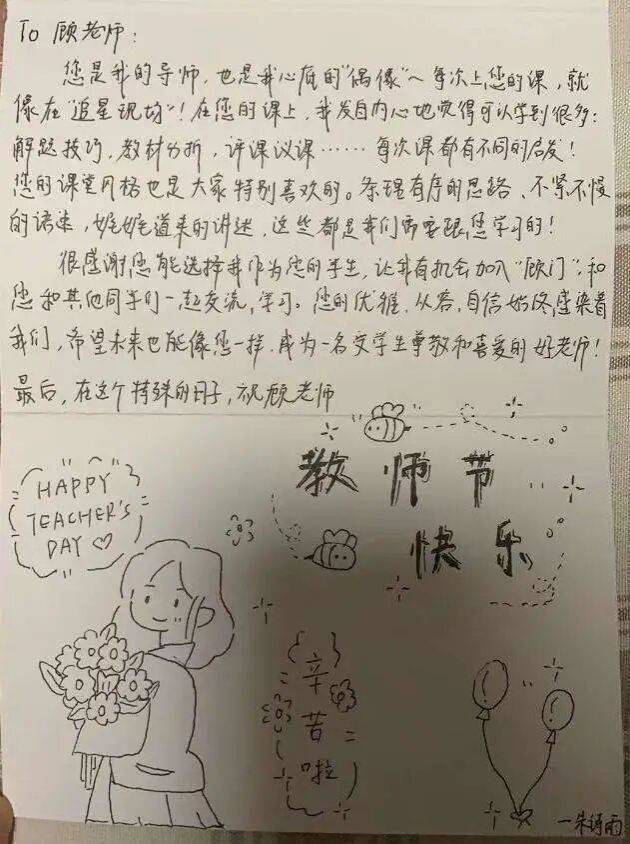 To 顾老师：
您是我的导师，也是我心底的“偶像”～每次上您的课，就
像在“追星现场”！在您的课上，我发自内心地觉得可以学到很多：
解题技巧，教材分析，评课议课……每次课都有不同的启发！
您的课堂风格也是大家特别喜欢的。条理有序的思路、不紧不慢
的语速，娓娓道来的讲述，这些都是我们需要跟您学习的！
很感谢您能选择我作为您的学生，让我有机会加入“顾门”，和
您和其他同学们一起交流，学习。您的优雅、从容、自信始终感染着
我们，希望未来也能像您一样，成为一名受学生尊敬和喜爱的好老师！
最后，在这个特殊的日子，祝顾老师
教师节
快乐
HAPPY
TEACHER'S
DAY
辛
苦
啦
—朱诗雨